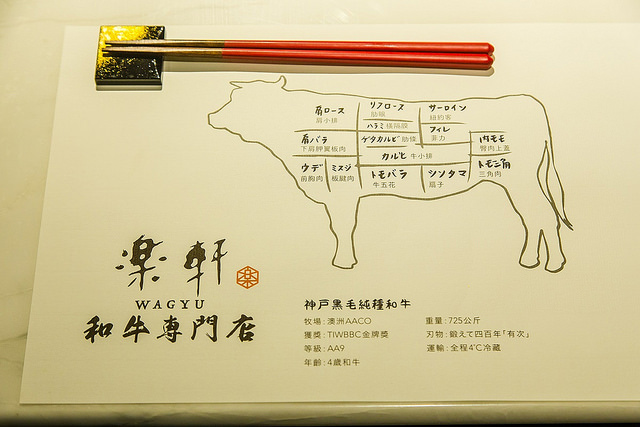 肩ロース
肩小排
リブロース
肋眼
サーロイン
紐約客
ハラミ 橫隔膜
フィレ
菲力
肩バラ
下肩胛翼板肉
ゲタカルビ 肋條
内モモ
臀肉上蓋
カルビ 牛小排
ウデ
前胸肉
ミスジ
板腱肉
トモバラ
牛五花
シンタマ
扇子
トモ三角
三角肉
楽軒
WAGYU
和牛専門店
神戸黑毛純種和牛
牧場:澳洲AACO
獲獎:TIWBBC金牌獎
等級:AA9
年齡:4歲和牛
重量:725公斤
刃物:鍛えて四百年「有次」
運輸:全程4℃冷藏